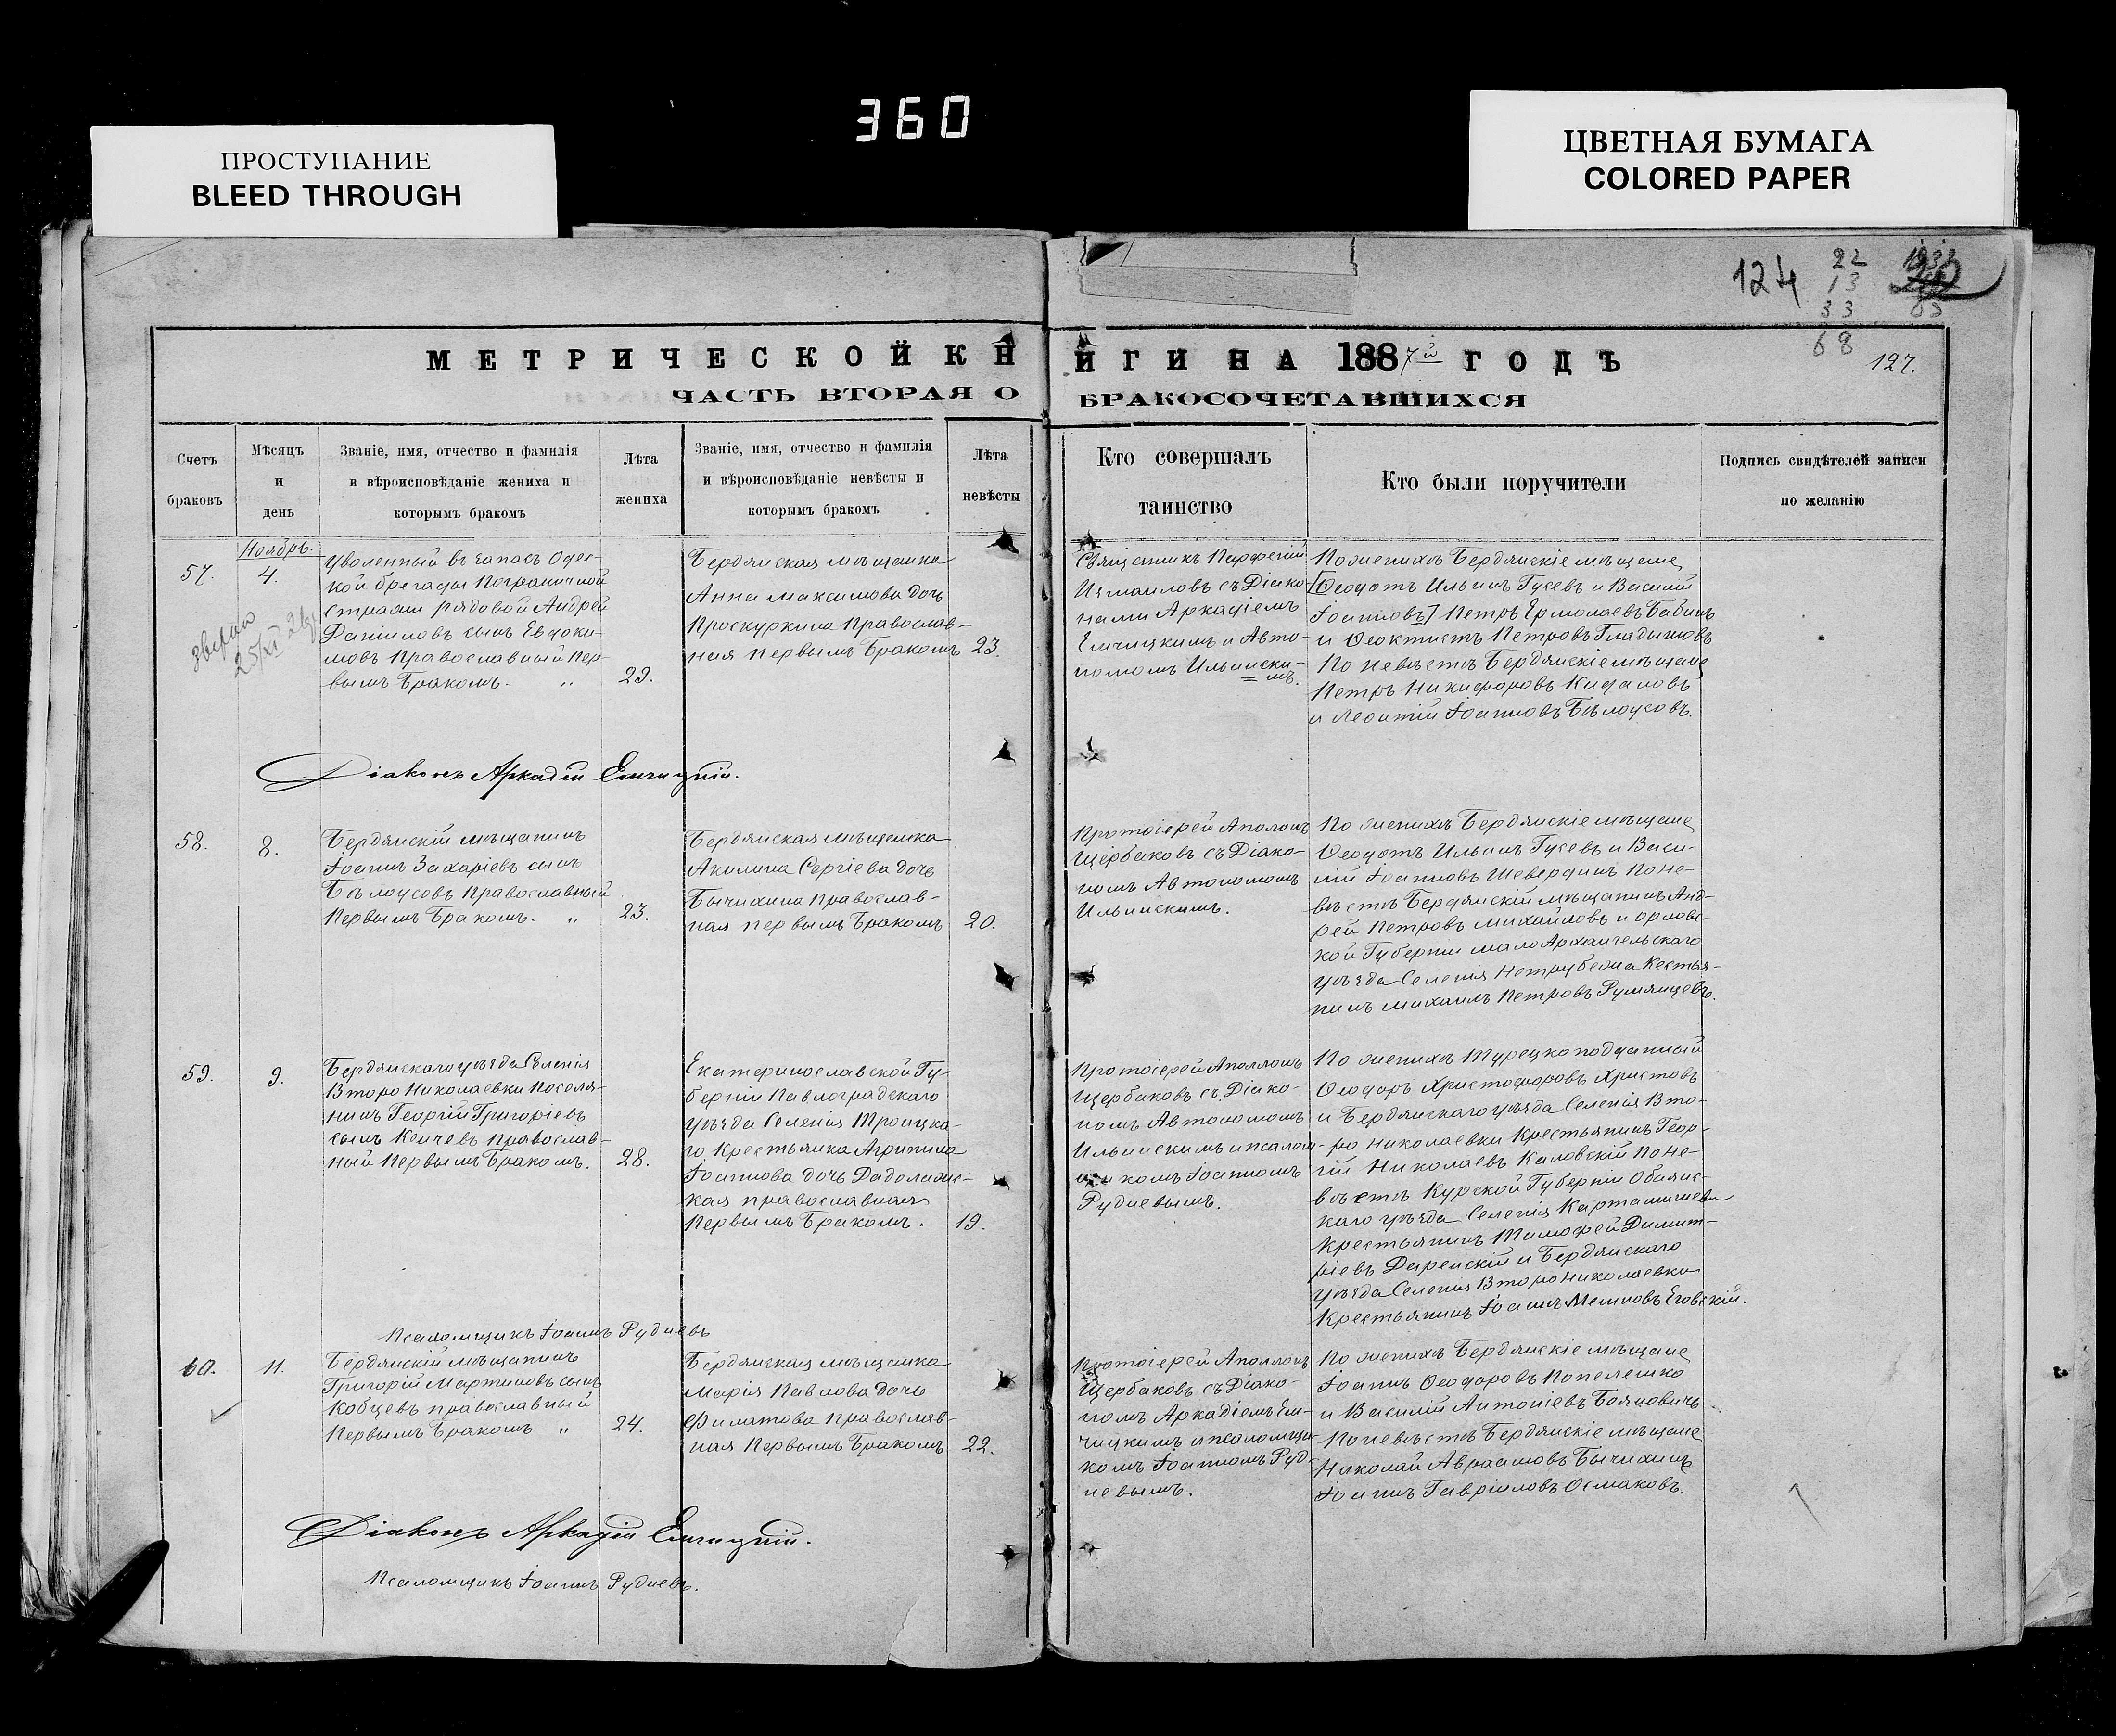 360
ПРОСТУПАНИЕ
BLEED THROUGH
ЦВЕТНАЯ БУМАГА
COLORED PAPER
124
22
13
33
68
МЕТРИЧЕСКОЙ КНИГИ НА 1887й ГОДЪ
127.
ЧАСТЬ ВТОРАЯ О БРАКОСОЧЕТАВШИХСЯ
Счетъ
браковъ
Мѣсяцъ
и
день
Званіе, имя, отчество и фамилія
и вѣроисповѣданіе жениха и
которымъ бракомъ
Лѣта
жениха
Званіе, имя, отчество и фамилія
и вѣроисповѣданіе невѣсты и
которымъ бракомъ
Лѣта
невѣсты
Кто совершалъ
таинство
Кто были поручители
Подпись свидѣтелей записи
по желанію
57.
Ноябрь.
4.
Уволенный въ запасъ Одес-
кой бригады Пограничной
стражи рядовой Андрей
Даніиловъ сынъ Евдоки-
мовъ Православный Пер-
вымъ Бракомъ. „
29.
Бердянская мѣщанка
Анна Максимова дочь
Проскурина Православ-
ная первымъ Бракомъ
23.
Священникъ Парфеній
Измаиловъ съ Діако-
нами Аркадіемъ
Емчицкимъ и Авто-
номомъ Ильински-
мъ.
По женихѣ Бердянскіе мѣщане
[Ѳеодотъ Ильинъ Гусевъ и Василий
Іоанновъ] Петръ Ермолаевъ Бабинъ
и Ѳеоктистъ Петровъ Гладышовъ
По невѣстѣ Бердянскіе мѣщане
Петръ Никифоровъ Кидаловъ
и Леонтій Іоанновъ Бѣлоусовъ.
Діаконъ Аркадій Емчицкій.
58.
8.
Бердянскій мѣщанинъ
Іоаннъ Захаріевъ сынъ
Бѣлоусовъ Православный
Первымъ Бракомъ. „
23.
Бердянская мѣщанка
Акилина Сергіева дочь
Бычихина Православ-
ная первымъ Бракомъ
20.
Протоіерей Аполонъ
Щербаковъ съ Діако-
номъ Автономомъ
Ильинскимъ.
По женихѣ Бердянскіе мѣщане
Ѳеодотъ Ильинъ Гусевъ и Васи-
лій Іоанновъ Шевердинъ По не-
вѣстѣ Бердянскій мѣщанинъ Анд-
рей Петровъ Михайловъ и Орловс-
кой Губерніи мало Архангельскаго
уѣзда Селенія Кестья-
нинъ Михаилъ Петровъ Румянцевъ.
59.
9.
Бердянскаго уѣзда Селенія
Второ Николаевки Поселя-
нинъ Георгій Григоріевъ
сынъ Кенчевъ православ-
ный Первымъ Бракомъ.
28.
Екатеринославской Гу-
берніи Павлоградскаго
уѣзда Селенія Троицка-
го Крестьянка Агрипина
Іоаннова дочь
кая православная
Первымъ Бракомъ.
19.
Протоіерей Аполлонъ
Щербаковъ съ Діако-
номъ Автономомъ
Ильинскимъ и псалом-
щикомъ Іоанномъ
Рудневымъ.
По женихѣ Турецко подданный
Ѳеодоръ Христофоровъ Христовъ
и Бердянскаго уѣзда Селенія Вто-
ро Николаевки Крестьянинъ Геор-
гій Николаевъ Каловскій По не-
вѣстѣ Курской Губерніи Обаянс-
каго уѣзда Селенія Картамышева
Крестьянинъ Тимофей Димит-
ріевъ Даренскій и Бердянскаго
уѣзда Селенія Второ Николаевки
Крестьянинъ Іоаннъ
Псаломщикъ Іоаннъ Рудневъ
60.
11.
Бердянскій мѣщанинъ
Григорій Мартиновъ сынъ
Кобцевъ православный
Первымъ Бракомъ „
24.
Бердянская мѣщанка
Марія Павлова дочь
Филатова православ-
ная Первымъ Бракомъ
22.
Протоіерей Аполлонъ
Щербаковъ съ Діако-
номъ Аркадіемъ Ем-
чицкимъ и псаломщи-
комъ Іоанномъ Руд-
невымъ.
По женихѣ Бердянскіе мѣщане
Іоаннъ Ѳеодоровъ Попелешко
и Василій Антоніевъ Бояновичъ
По невѣстѣ Бердянскіе мѣщане
Николай Авраамовъ Бычихинъ
Іоаннъ Гавріиловъ Осмаковъ.
Діаконъ Аркадій Емчицкій.
Псаломщикъ Іоаннъ Рудневъ.